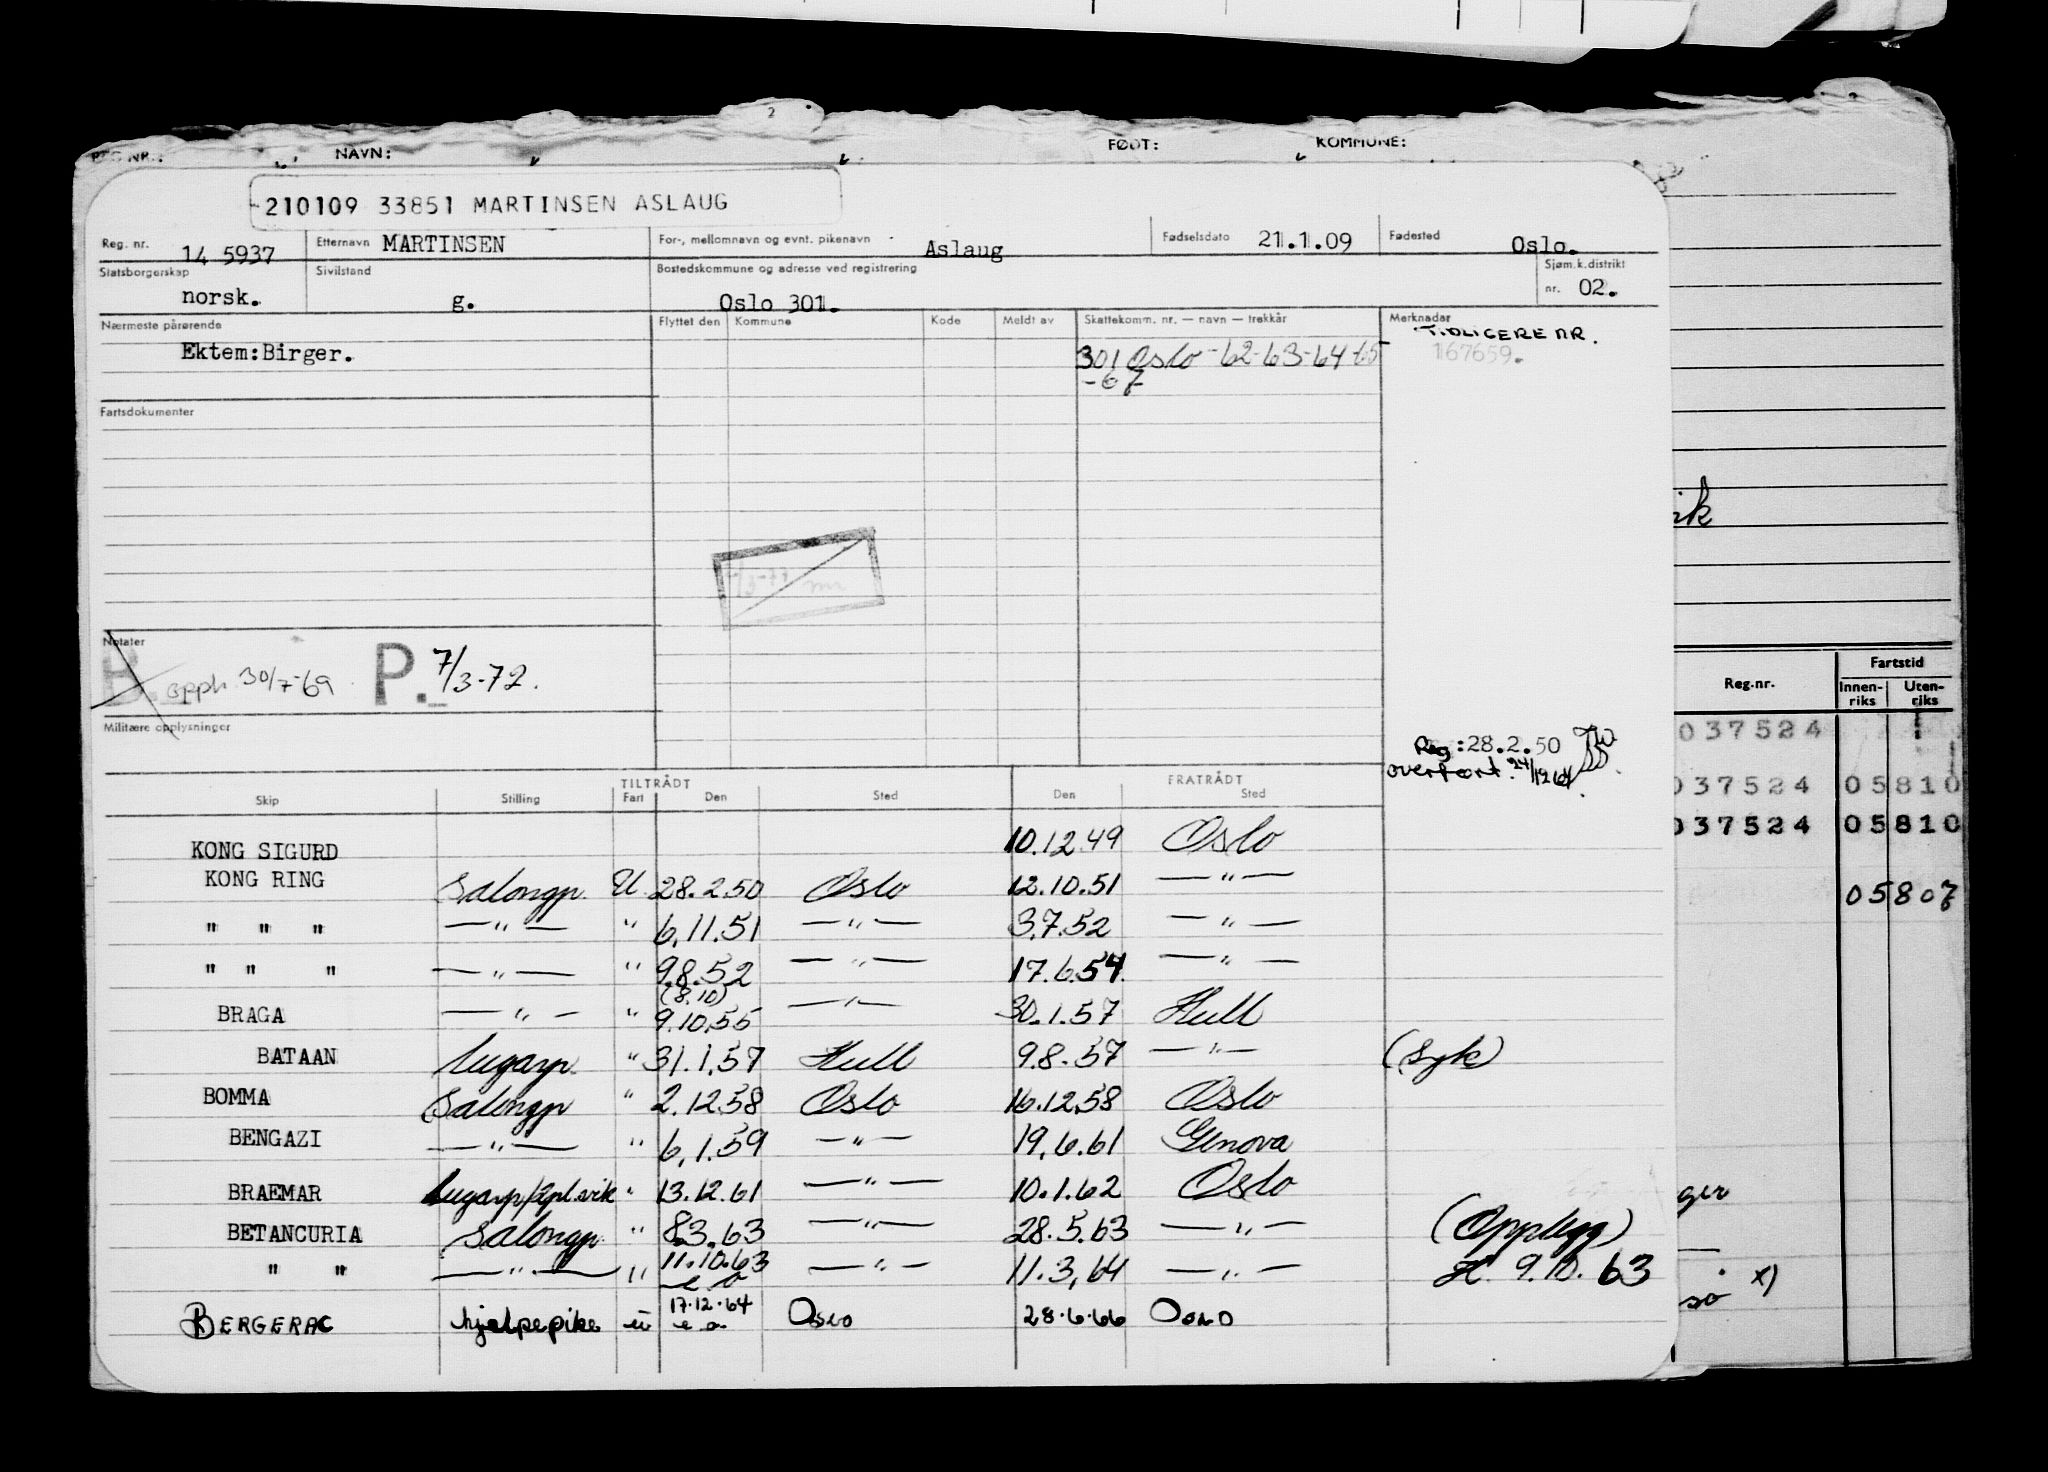 2
REG. NR.: NAVN: FØDT: KOMMUNE:
210109 33851 MARTINSEN ASLAUG
Reg. nr. 14 5937 Etternavn MARTINSEN For-, mellomnavn og evnt. pikenavn Aslaug Fødselsdato 21.1.09 Fødested Oslo.
Statsborgerskap norsk. Sivilstand g. Bostedskommune og adresse ved registrering Oslo 301. Sjøm.k.distrikt nr. 02.
Nærmeste pårørende Flyttet den Kommune Kode Meldt av Skattekomm. nr. — navn — trekkår Merknader
TIDLIGERE NR.
Ektem:Birger. 301 Oslo -62-63-64-65 167659.
-67
Fartsdokumenter
Notater
B. opph 30/7-69 P. 7/3-72.
Militære opplysninger
Reg:28.2.50
overført. 24/1264
TILTRÅDT FRATRÅDT
Skip Stilling Fart Den Sted Den Sted
KONG SIGURD 10.12.49 Oslo
KONG RING Salongp. U. 28.2.50 Oslo 12.10.51 —"—
" " " —"— " 6.11.51 —"— 3.7.52 —"—
" " " —"— " 9.8.52 —"— 17.6.54. —"—
(8.10)
BRAGA —"— " 9.10.55 —"— 30.1.57 Hull
BATAAN lugarp. " 31.1.57 Hull 9.8.57 —"— (syk)
BOMMA Salongp " 2.12.58 Oslo 16.12.58 Oslo
BENGAZI —"— " 6.1.59 —"— 19.6.61 Genova
BRAEMAR lugarp/spl.vik " 13.12.61 —"— 10.1.62 Oslo
BETANCURIA Salongp. " 8.3.63 —"— 28.5.63 —"— (Opplegg)
" " —"— " 11.10.63 —"— 11.3.64 —"— H. 9.10.63
BERGERAC hjelpepike u 17.12.64 Oslo 28.6.66 Oslo
Reg.nr. Fartstid
Innen-riks Uten-riks
037524
037524 05810
037524 05810
05807
x)